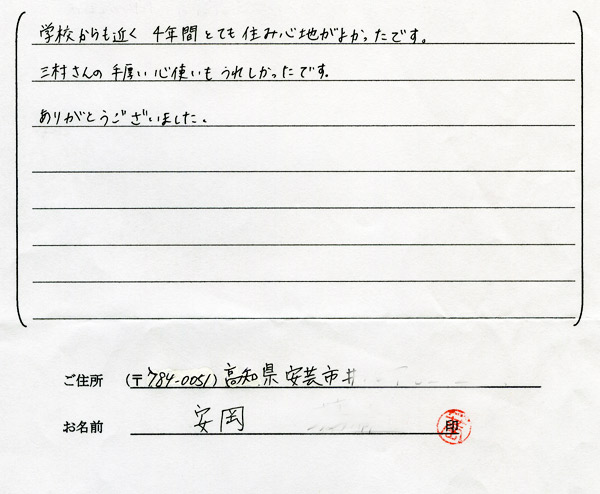 学校からも近く 4年間とても住み心地がよかったです。
三村さんの手厚い心使いもうれしかったです。
ありがとうございました。
ご住所 (〒784-0051) 高知県安芸市井
お名前 安岡 印